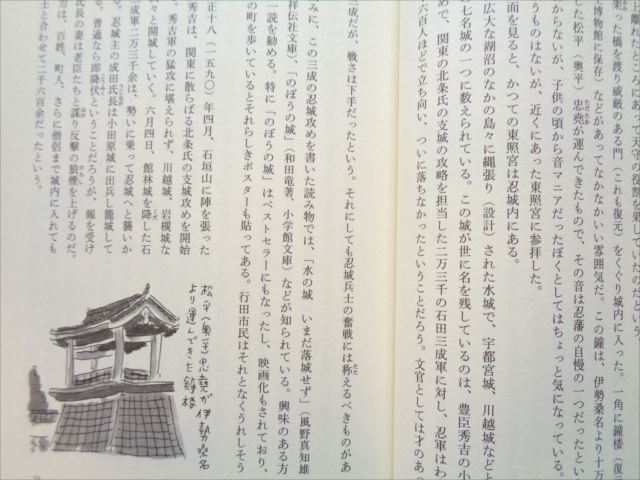 離れたとこにあって天守の役割を果していたのだという。
果った橋を渡り威厳のある門（これも復元）をくぐり城内に入った。一角に鐘楼（復元
博物館に保存）などがあってなかなかいい雰囲気だ。この鐘は、伊勢桑名より十万
した松平（奥平）忠堯が運んできたもので、その音は忍藩の自慢の一つだったとい
からないが、子供の頃から音マニアだったぼくとしてはちょっと気になっている。
うものはないが、近くにあった東照宮に参拝した。
面を見ると、かつての東照宮は忍城内にある。
広大な湖沼のなかの島々に縄張り（設計）された水城で、宇都宮城、川越城などと
七名城の一つに数えられている。この城が世に名を残しているのは、豊臣秀吉の小
めで、関東の北条氏の支城の攻略を担当した二万三千の石田三成軍に対し、忍軍はわ
六百人ほどで立ち向い、ついに落ちなかったということだろう。文官としては才のあっ
三成だが、戦さは下手だったという。それにしても忍城兵士の奮戦には称えるべきものがあ
みに、この三成の忍城攻めを書いた読み物では、「水の城　いまだ落城せず」（風野真知雄
祥伝社文庫）、「のぼうの城」（和田竜著、小学館文庫）などが知られている。興味のある方
一読を勧める。特に「のぼうの城」はベストセラーにもなったし、映画化もされており、
の町を歩いているとそれらしきポスターも貼ってある。行田市民はそれとなくうれしそう
正十八（一五九〇）年四月、石垣山に陣を張った
秀吉は、関東に散らばる北条氏の支城攻めを開始
。秀吉軍の猛攻に堪えられず、川越城、岩槻城な
々と開城していく。六月四日、館林城を降した石
成軍二万三千余は、勢いに乗って忍城へと襲いか
る。普通なら即降伏ということだろうが、報を受け
忍城主の成田氏長は小田原城に出兵し籠城して
氏長の妻は老臣たちと謀り反撃の狼煙を上げるのだ。
力は、百姓、町人、さらに僧侶まで城内に入れても
士と合わせて二千六百余だったという。
松平（奥平）忠堯が伊勢桑名
より運んできた鐘楼